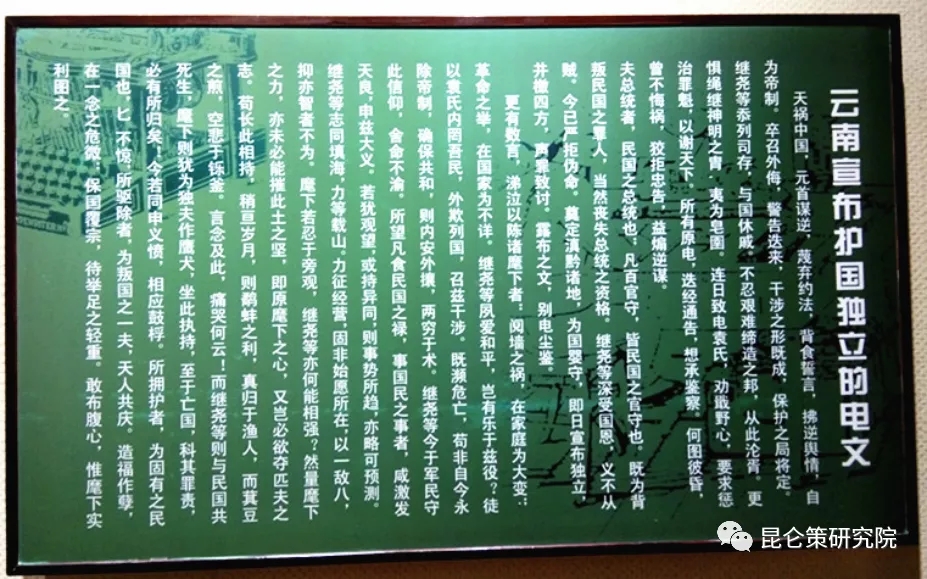 云南宣布护国独立的电文
天祸中国，元首谋逆，蔑弃约法，背食誓言，拂逆舆情，自
为帝制。卒召外侮，警告迭来，干涉之形既成，保护之局将定。
继尧等忝列司存，与国休戚，不忍艰难缔造之邦，从此沦胥。更
惧绳继神明之胄，夷为皂圉。连日致电袁氏，劝戢野心，要求惩
治罪魁，以谢天下。所有原电，迭经通告，想承鉴察。何图彼昏，
曾不悔祸，狡拒忠告，益煽逆谋。
夫总统者，民国之总统也；凡百官守，皆民国之官守也。既为背
叛民国之罪人，当然丧失总统之资格。继尧等深受国恩，义不从
贼。今已严拒伪命，奠定滇黔诸地，为国婴守，即日宣布独立，
并檄四方，声罪致讨。露布之文，别电尘鉴。
更有数言，涕泣以陈诸麾下者，阋墙之祸，在家庭为大变；
革命之举，在国家为不详。继尧等夙爱和平，岂有乐于兹役？徒
以袁氏内罔吾民，外欺列国，召兹干涉。既濒危亡，苟非自今永
除帝制，确保共和，则内安外攘，两穷于术。继尧等今于军民守
此信仰，舍命不渝。所望凡食民国之禄，事国民之事者，咸激发
天良，申兹大义。若犹观望，或持异同，则事势所趋，亦略可预测。
继尧等志同填海，力等载山。力征经营，固非始原所在，以一敌八，
抑亦智者不为。麾下若忍于旁观，继尧等亦何能相强？然量麾下
之力，亦未必能摧此土之坚，即原麾下之心，又岂必欲夺匹夫之
志。苟长此相持，稍亘岁月，则鹬蚌之利，真归于渔人，而萁豆
之煎，空悲于铄釜。言念及此，痛哭何云！而继尧等则与民国共
死生，麾下则犹为独夫作鹰犬，坐此执持，至于亡国，科其罪责，
必有所归矣。今若同申义愤，相应鼓桴。所拥护者，为固有之民
国也，匕不惊。所驱除者，为叛国之一夫，天人共庆。造福作孽，
在一念之危微，保国覆宗，待举足之轻重。敢布腹心，惟麾下实
利图之。
昆仑策研究院